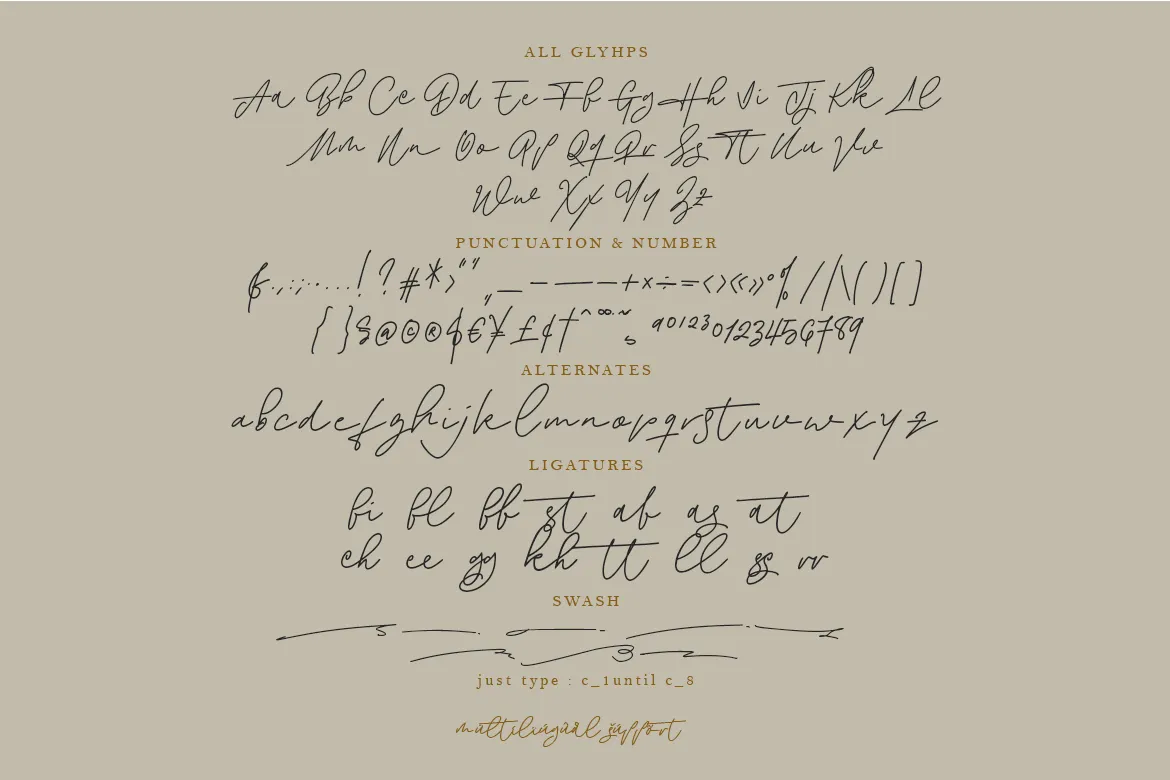 ALL GLYHPS
Aa Bb Cc Dd Ee Ff Gg Hh Ii Jj Kk Ll
Mm Nn Oo Pp Qq Rr Ss Tt Uu Vv
Ww Xx Yy Zz
PUNCTUATION & NUMBER
! ? # * _ + × ÷ = < > « » ° % / | \ ( ) [ ]
{ } § @ © ® $ € ¥ £ ¢ † 0123456789
ALTERNATES
abcdefghijklmnopqrstuvwxyz
LIGATURES
fi fl ff st af as at
ch ee gg kh tt ll ss rr
SWASH
just type : c_1until c_8